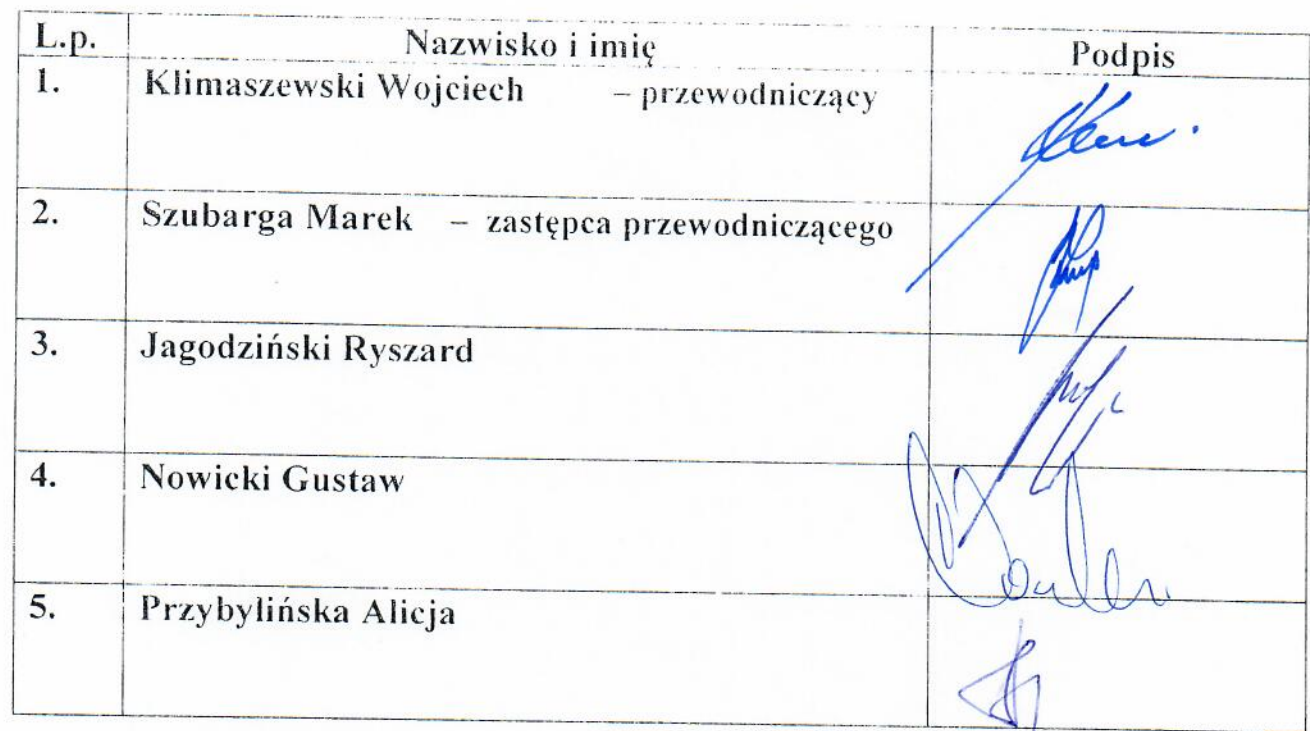 L.p. Nazwisko i imię Podpis
1. Klimaszewski Wojciech – przewodniczący
2. Szubarga Marek – zastępca przewodniczącego
3. Jagodziński Ryszard
4. Nowicki Gustaw
5. Przybylińska Alicja